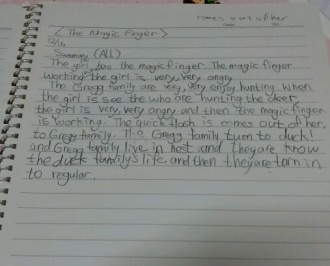 comes out of her
< The Magic Finger >
12/16
Summary (ALL)
The girl has the magic finger. The magic finger
working the girl is very, very angry.
The Gregg family are very, very enjoy hunting. When
the girl is see the who are hunting the deer,
the girl is very, very angry and then the magic finger
is working. The quick flash is comes out of her.
to Gregg family. The Gregg family turn to duck!
and Gregg family live in nest and they are know
the duck family's life, and then they are turn in
to regular.